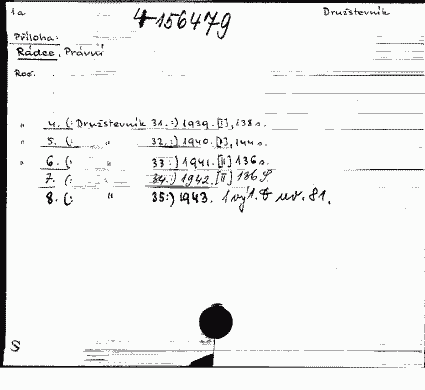 1a 4-156479 Družstevník
Příloha:
Rádce, Právní
Roč.
" 4. (: Družstevník 31.:) 1939. [I], 138 s.
" 5. (: " 32.:) 1940. [I], 144 s.
" 6. (: " 33:) 1941. [II] 136 s.
7. (: " 34.:) 1942. [II] 136 S.
8. (: " 35:) 1943. 81.
S